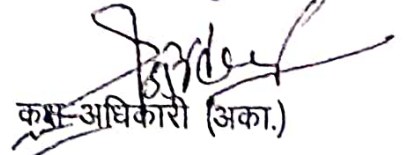 कक्ष-अधिकारी (अका.)